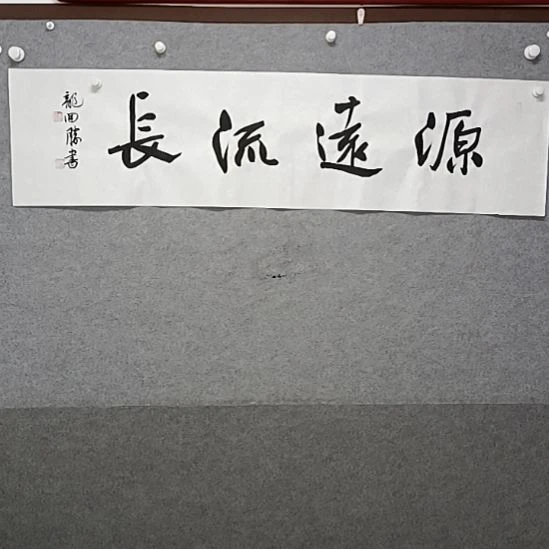 源遠流長
龍回勝書